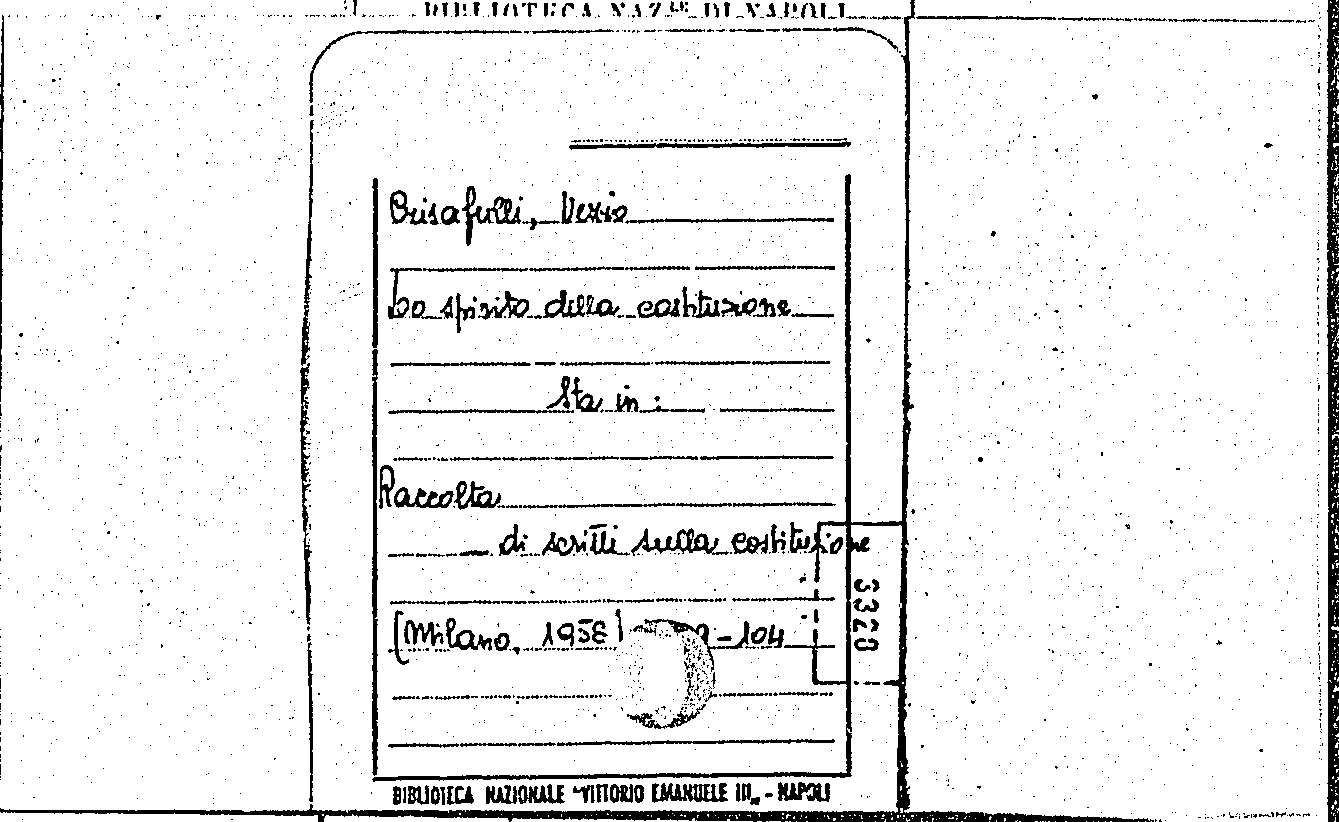 BIBLIOTECA NAZ.LE DI NAPOLI
Crisafulli, Vezio
Lo spirito della costituzione
Sta in:
Raccolta
di scritti sulla costituzione
[Milano, 1958] -104
3320
BIBLIOTECA NAZIONALE "VITTORIO EMANUELE III„ - NAPOLI